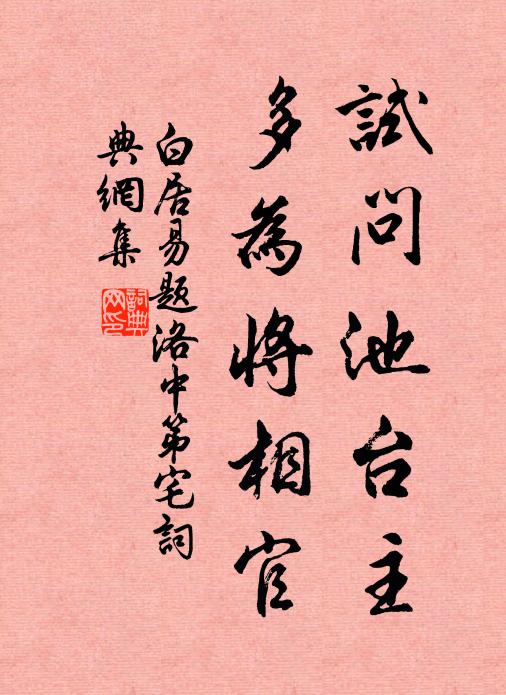 試問池台主
多為將相官
白居易題洛中第宅詞
典網集
詞典網印